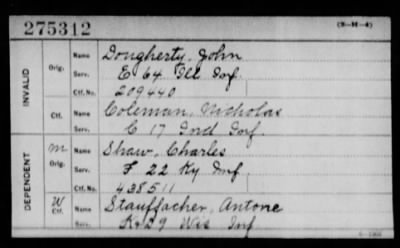 275312
(3-H-4)
INVALID
Orig. Name Dougherty, John
Serv. E 64 Ill Inf.
Ctf. No. 209440
Ctf. Name Coleman, Nicholas
Serv. C 17 Ind Inf
DEPENDENT
M Orig. Name Shaw, Charles
Serv. F 22 Ky Inf.
Ctf. No. 438511
W Ctf. Name Stauffacher, Antone
Serv. Wis Inf